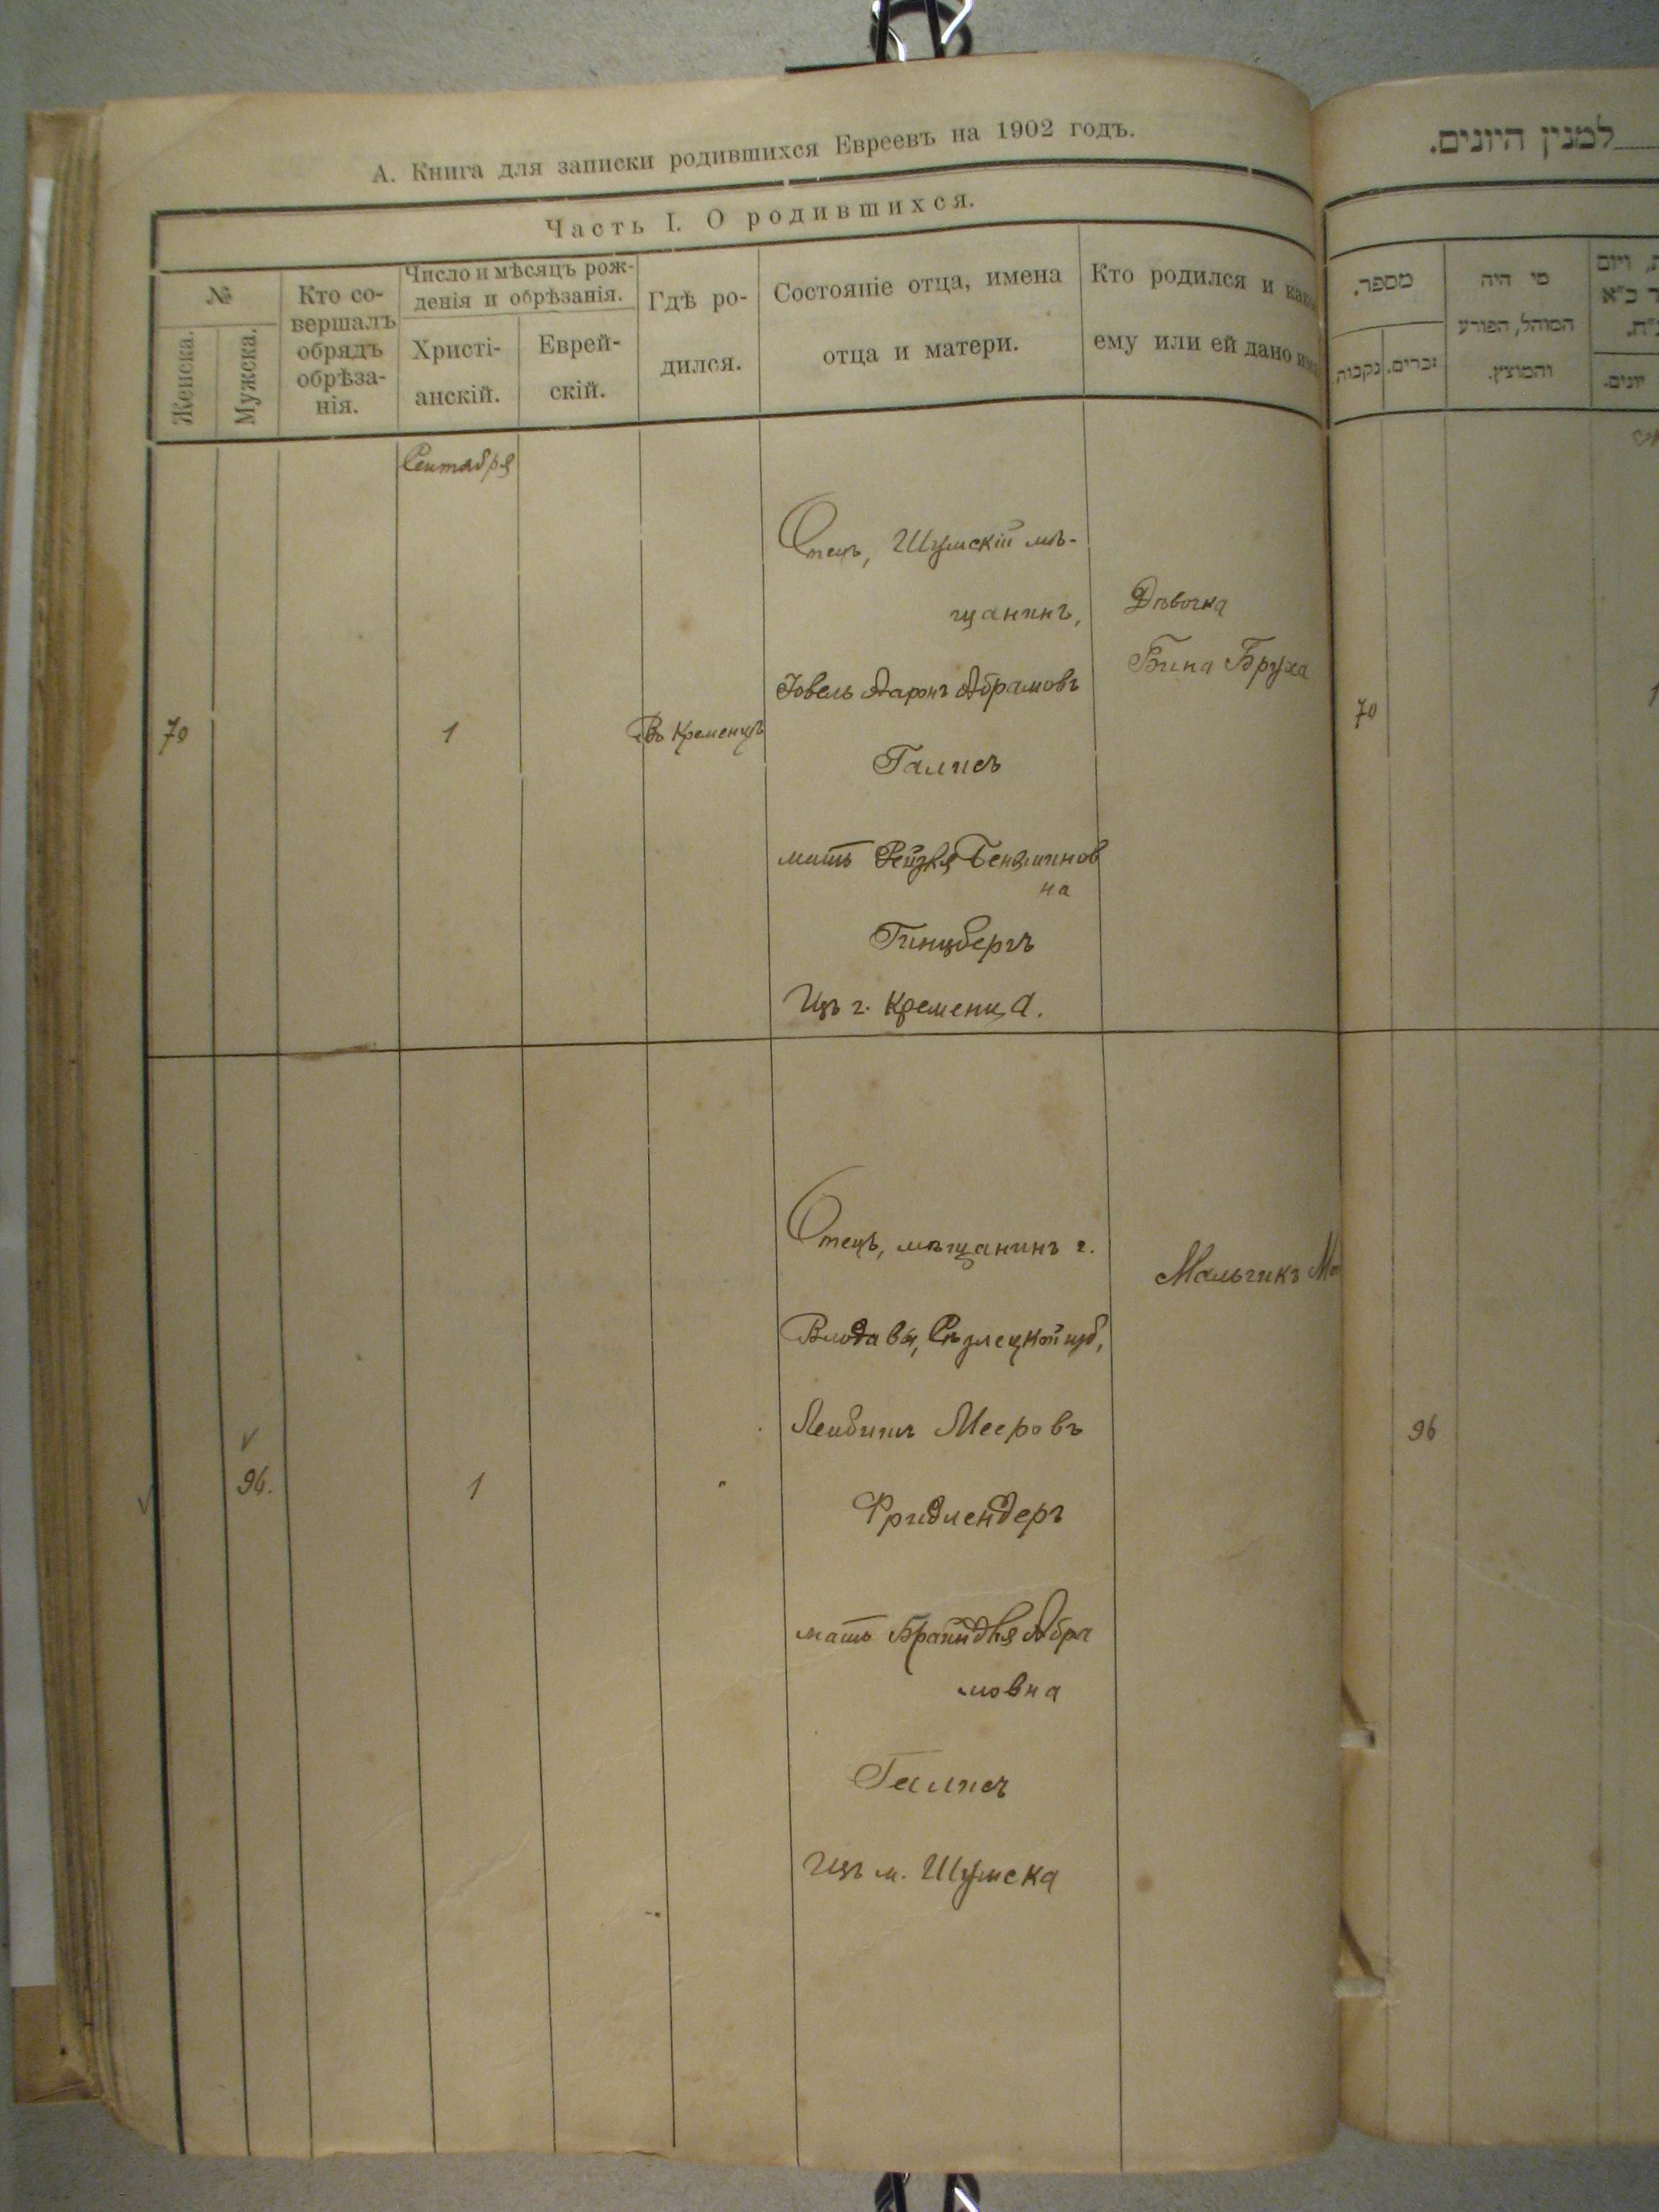 А. Книга для записки родившихся Евреевъ на 1902 годъ.
Часть I. О родившихся.
№
Женска.
Мужска.
Кто со-
вершалъ
обрядъ
обрѣза-
нія.
Число и мѣсяцъ рож-
денія и обрѣзанія.
Христі-
анскій.
Еврей-
скій.
Гдѣ ро-
дился.
Состояніе отца, имена
отца и матери.
Кто родился и
ему или ей дано
Сентября
70
1
Въ Кременцѣ
Отецъ, Шумскій мѣ-
щанинъ,
Ааронъ Абрамовъ
Галисъ
мать Рейзя Бенямінов
на
Гинцбергъ
Изъ г. Кременца.
Дѣвочка
Бина Бруха
96.
1
"
Отецъ, мѣщанинъ г.
Влодавы, Сѣдлецкой губ,
Лейбишъ Мееровъ
Фридлендеръ
мать Абра
мовна
Галисъ
Изъ м. Шумска
Мальчикъ
למנין היונים.
מספר.
נקבות
זכרים.
מי היה
המוהל, הפורע
והמוצץ.
יונים.
70
96